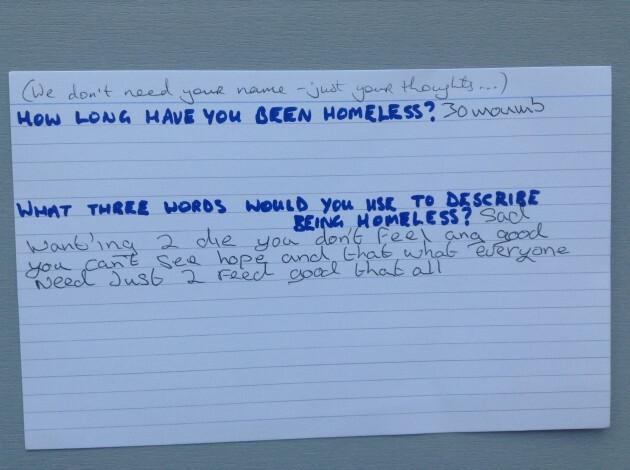 (We don't need your name - just your thoughts...)
HOW LONG HAVE YOU BEEN HOMELESS? 30 mounb
WHAT THREE WORDS WOULD YOU USE TO DESCRIBE
BEING HOMELESS? Sad
Want'ing 2 die you don't feel any good
you can't see hope and that what everyone
Need Just 2 Feed good that all